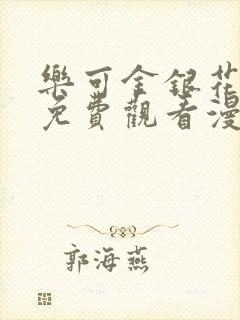 樂可金銀花
免費觀看漫
郭海燕